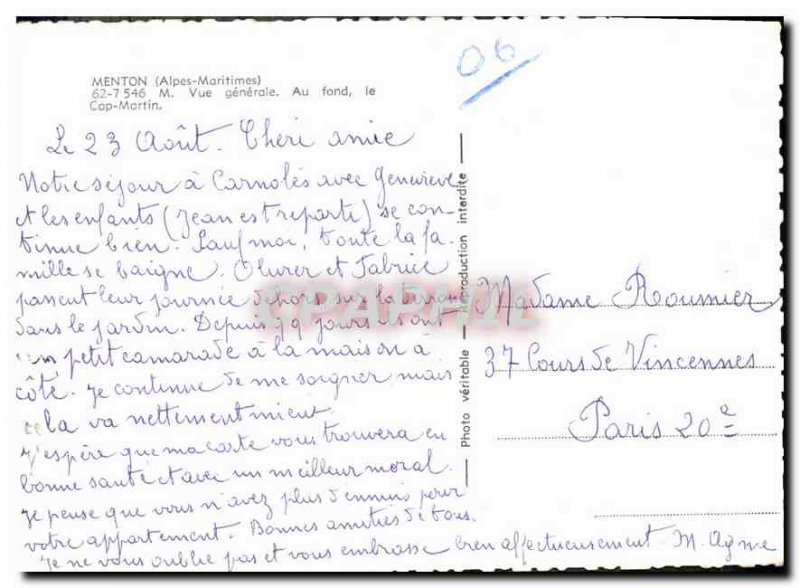 06
MENTON (Alpes-Maritimes)
62-7546 M. Vue générale. Au fond, le
Cap-Martin.
Le 23 Août. Chère amie
Notre séjour à Carnolès avec Geneviève
et les enfants (Jean est reparti) se con-
tinue bien. Sauf moi, toute la fa-
mille se baigne. Olivier et Fabrice
passent leur journée dehors sur la terrasse
dans le jardin. Depuis qq jours ils ont
un petit camarade à la maison à
côté. Je continue de me soigner mais
cela va nettement mieux.
J'espère que ma carte vous trouvera en
bonne santé et avec un meilleur moral.
Je pense que vous n'avez plus d'ennuis pour
votre appartement. Bonnes amitiés de tous.
Je ne vous oublie pas et vous embrasse bien affectueusement. M. Agnie
Photo véritable — Reproduction interdite
CPAPHIL
Madame Roumier
37 Cours de Vincennes
Paris 20e